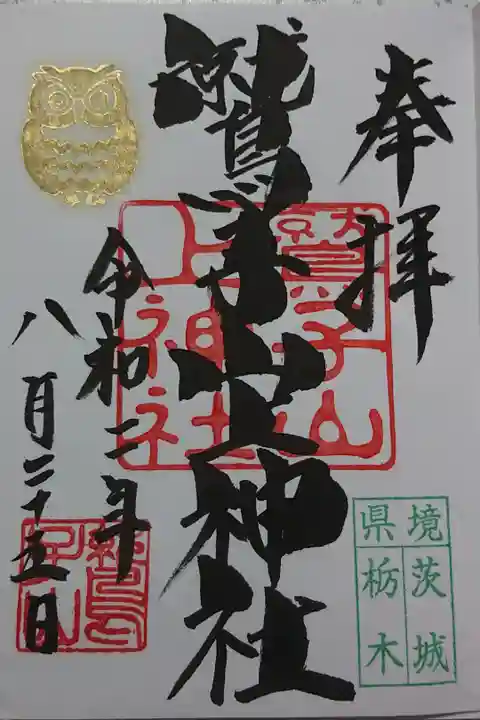 奉拝
鷲子山上神社
令和二年
八月二十五日
鷲子山
上神社
鷲
子山
県境
茨城
栃木